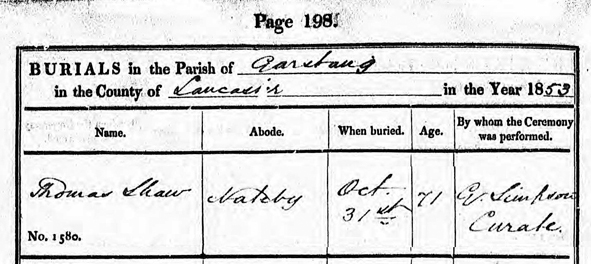 Page 198.
BURIALS in the Parish of Garstang
in the County of Lancaster in the Year 1853
Name. Abode. When buried. Age. By whom the Ceremony was performed.
Thomas Shaw Nateby Oct. 31st 71 G. Simpson Curate.
No. 1580.